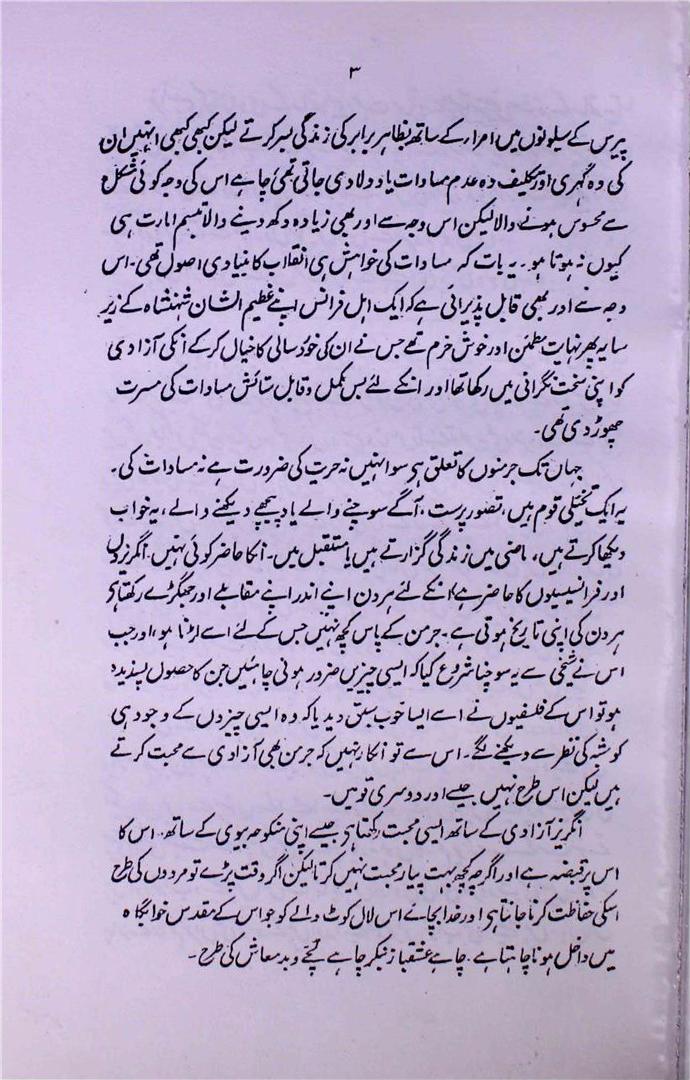 ۳
پیرس کے سیلونوں میں امراء کے ساتھ بظاہر برابر کی زندگی بسر کرتے لیکن کبھی کبھی انہیں ان
کی وہ گہری اور تکلیف دہ عدم مساوات یاد دلا دی جاتی تھی چاہے اس کی وجہ کوئی مشکل
سے محسوس ہونے والا لیکن اس وجہ سے اور بھی زیادہ دکھ دینے والا تبسم امارت ہی
کیوں نہ ہوتا ہو۔ یہ بات کہ مساوات کی خواہش ہی انقلاب کا بنیادی اصول تھی۔ اس
وجہ سے اور بھی قابل پذیرائی ہے کہ ایک اہل فرانس اپنے عظیم الشان شہنشاہ کے زیر
سایہ پھر نہایت مطمئن اور خوش خرم تھے جس نے ان کی خوُد سالی کا خیال کر کے انکی آزادی
کو اپنی سخت نگرانی میں رکھا تھا اور انکے لئے بس مکمل و قابل ستائش مساوات کی مسرت
چھوڑ دی تھی۔
جہاں تک جرمنوں کا تعلق ہے سو انہیں نہ حریت کی ضرورت ہے نہ مساوات کی۔
یہ ایک تخیّلی قوم ہیں، تصور پرست، آگے سوچنے والے یا پیچھے دیکھنے والے، یہ خواب
دیکھا کرتے ہیں، ماضی میں زندگی گزارتے ہیں یا مستقبل میں۔ انکا حاضر کوئی نہیں۔ انگریزوں
اور فرانسیسیوں کا حاضر ہے، انکے لئے ہر دن اپنے اندر اپنے مقابلے اور جھگڑے رکھتا ہے
ہر دن کی اپنی تاریخ ہوتی ہے۔ جرمن کے پاس کچھ نہیں جس کے لئے اسے لڑنا ہو، اور جب
اس نے شیخی سے یہ سوچنا شروع کیا کہ ایسی چیزیں ضرور ہونی چاہئیں جن کا حصول پسندیدہ
ہو تو اس کے فلسفیوں نے اسے ایسا خوب سبق دیدیا کہ وہ ایسی چیزوں کے وجود ہی
کو شبہ کی نظر سے دیکھنے لگے۔ اس سے تو انکار نہیں کہ جرمن بھی آزادی سے محبت کرتے
ہیں لیکن اس طرح نہیں جیسے اور دوسری قومیں۔
انگریز آزادی کے ساتھ ایسی محبت رکھتا ہے جیسے اپنی منکوحہ بیوی کے ساتھ۔ اس کا
اس پر قبضہ ہے اور اگرچہ کچھ بہت پیار محبت نہیں کرتا لیکن اگر وقت پڑے تو مردوں کی طرح
اسکی حفاظت کرنا جانتا ہے اور خدا بچائے اس لال کوٹ والے کو جو اس کے مقدس خوابگاہ
میں داخل ہونا چاہتا ہے۔ چاہے عشقباز بنکر چاہے لچے و بدمعاش کی طرح۔